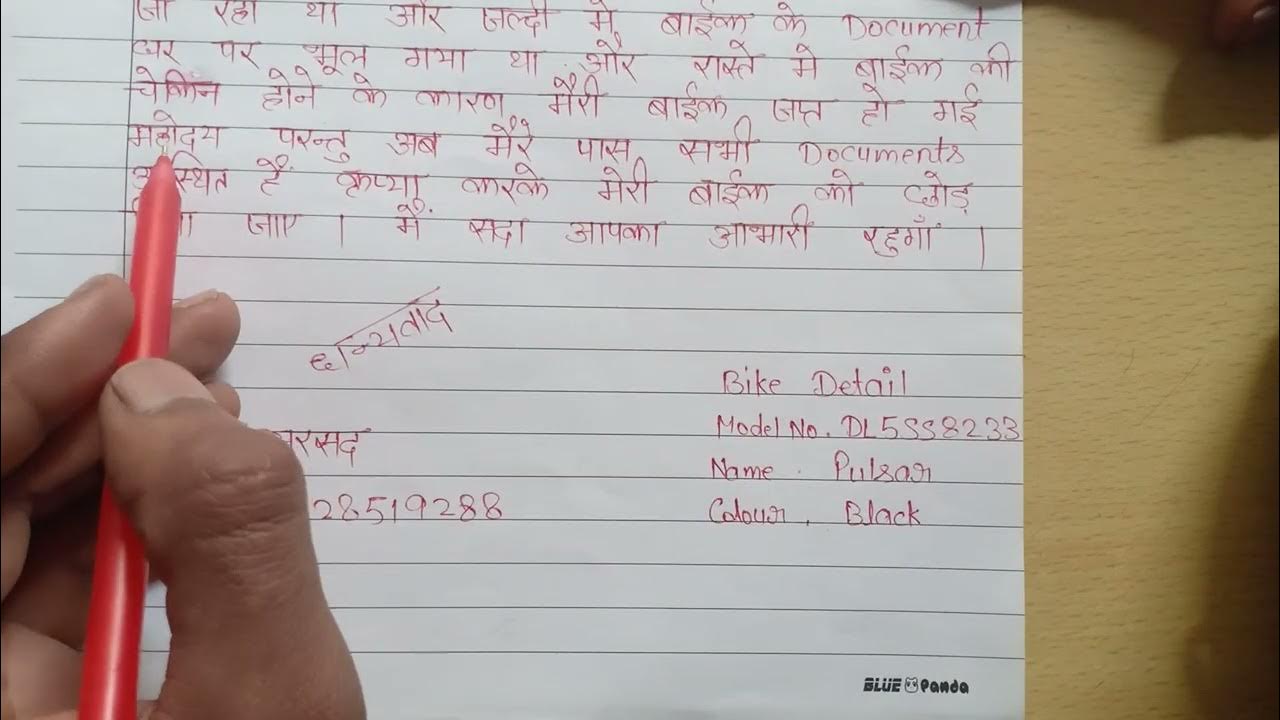 जा रहा था और जल्दी मे बाईक के Document
घर पर भूल गया था और रास्ते मे बाईक की
चेकिन होने के कारण मैरी बाईक जप्त हो गई
महोदय परन्तु अब मैरे पास सभी Documents
हैं कृप्या करके मेरी बाईक को छोड़
जाए । मैं सदा आपका आभारी रहुगाँ ।
धन्यिवाद
Bike Detail
Model No. DL5SS8233
Name . Pulsar
28519288
Colour . Black
BLUE Panda